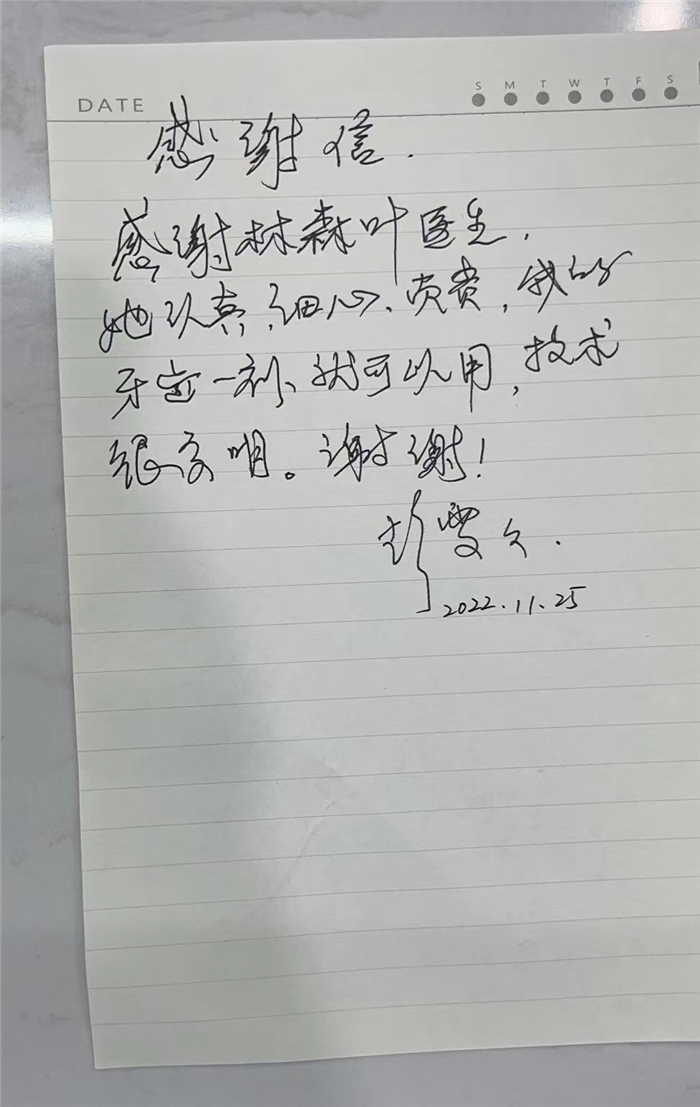 DATE
S M T W T F S
感谢信.
感谢林森叶医生,
她认真,细心、负责,我的
牙齿一来、就可以用,技术
很高明。谢谢!
彭雯
2022.11.25